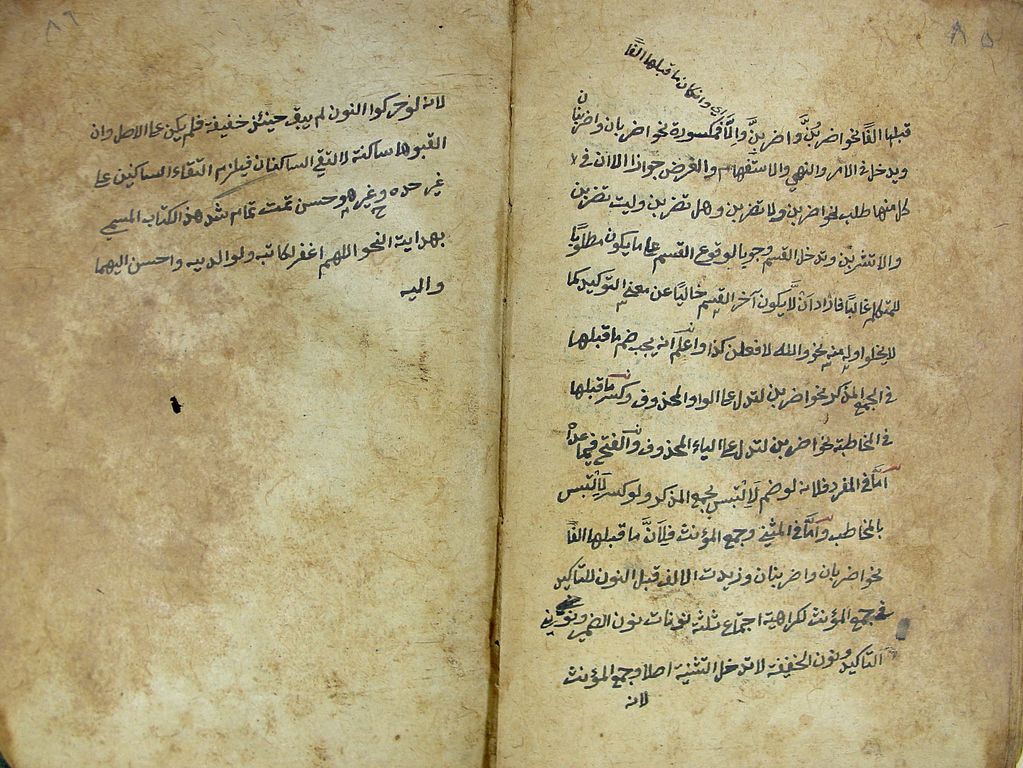 ٨٥
اي وان كان ما قبلها الفًا
قبلها الفًا نحو اضربُنَّ واضربِنَّ والّا فمكسورة نحو اضربان واضربنان
ويدخل في الامر والنهي والاستفهام والعرض جوازا لان في
كل منها طلب نحو اضربن ولا تضربن وهل تضربن وليت تضربن
والا تشربن وتدخل القسم وجوبا لوقوع القسم على ما يكون مطلوبًا
للمتكلم غالبًا فارادا ان لا يكون آخر القسم خاليًا عن معنى التوكيد كما
لا يخلو اوله منه نحو والله لافعلن كذا واعلم انه يجب ضم ما قبلها
في الجمع المذكر نحو اضربن لتدل على الواو المحذوف وكسر ما قبلها
في المخاطبة نحو اضربن لتدل على الياء المحذوف والفتح فيما عداه
امّا في المفرد فلانه لو ضم لَالْتبس بجمع المذكر ولو كسر لَالْتبس
بالمخاطب وامّا في المثنى وجمع المؤنث فلِاَنَّ ما قبلها الفًا
نحو اضربان واضربنان وزيدت الالف قبل النون للتاكيد
في جمع المؤنث لكراهية اجتماع ثلثة نونات نون الضمير ونوني
التاكيد ونون الخفيفة لا تدخل التثنية اصلا وجمع المؤنث
لانه
٨٦
لانه لو حركوا النون لم يبق حينئذ خفيفة فلم يكن على الاصل وان
القبوها ساكنة لالتقى الساكنان فيلزم التقاء الساكنين على
غير حده وغير هو حسن تمت تمام شد هذ الكتاب المسمى
بهدايت النحو اللهم اغفر لكاتبه ولوالديه واحسن اليهما
واليه